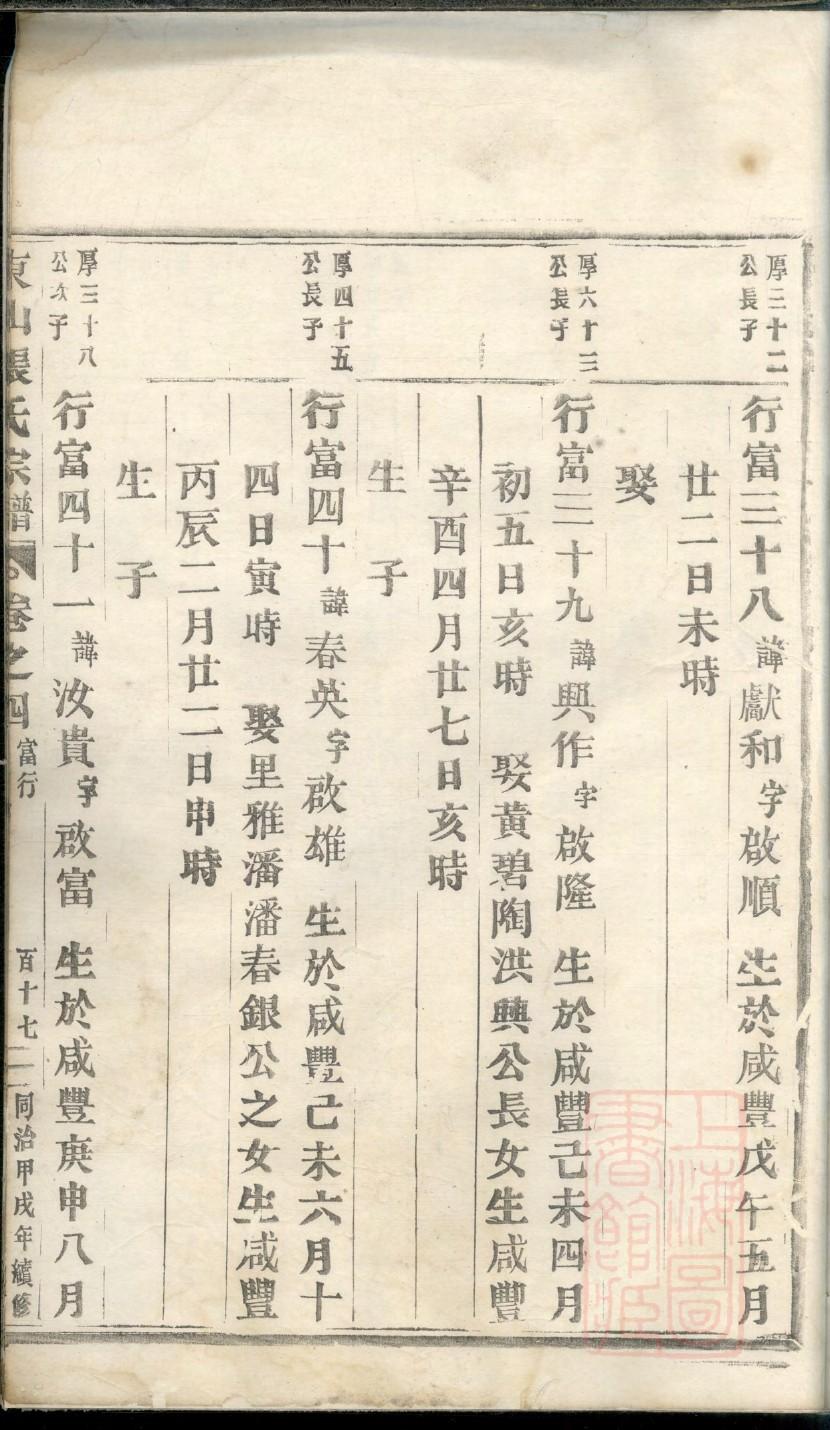 厚三十二
公長子
行富三十八諱獻和字啟順 生於咸豐戊午五月
廿二日未時
娶
厚六十三
公長子
行富三十九諱興作字啟隆 生於咸豐己未四月
初五日亥時 娶黃碧陶洪興公長女生咸豐
辛酉四月廿七日亥時
生 子
厚四十五
公長子
行富四十諱春英字啟雄 生於咸豐己未六月十
四日寅時 娶里雅潘潘春銀公之女生咸豐
丙辰二月廿二日申時
生 子
厚三十八
公次子
行富四十一諱汝貴字啟富 生於咸豐庚申八月
東山張氏宗譜 卷之四 富行 百十七 同治甲戌年續修
上海圖
書館藏